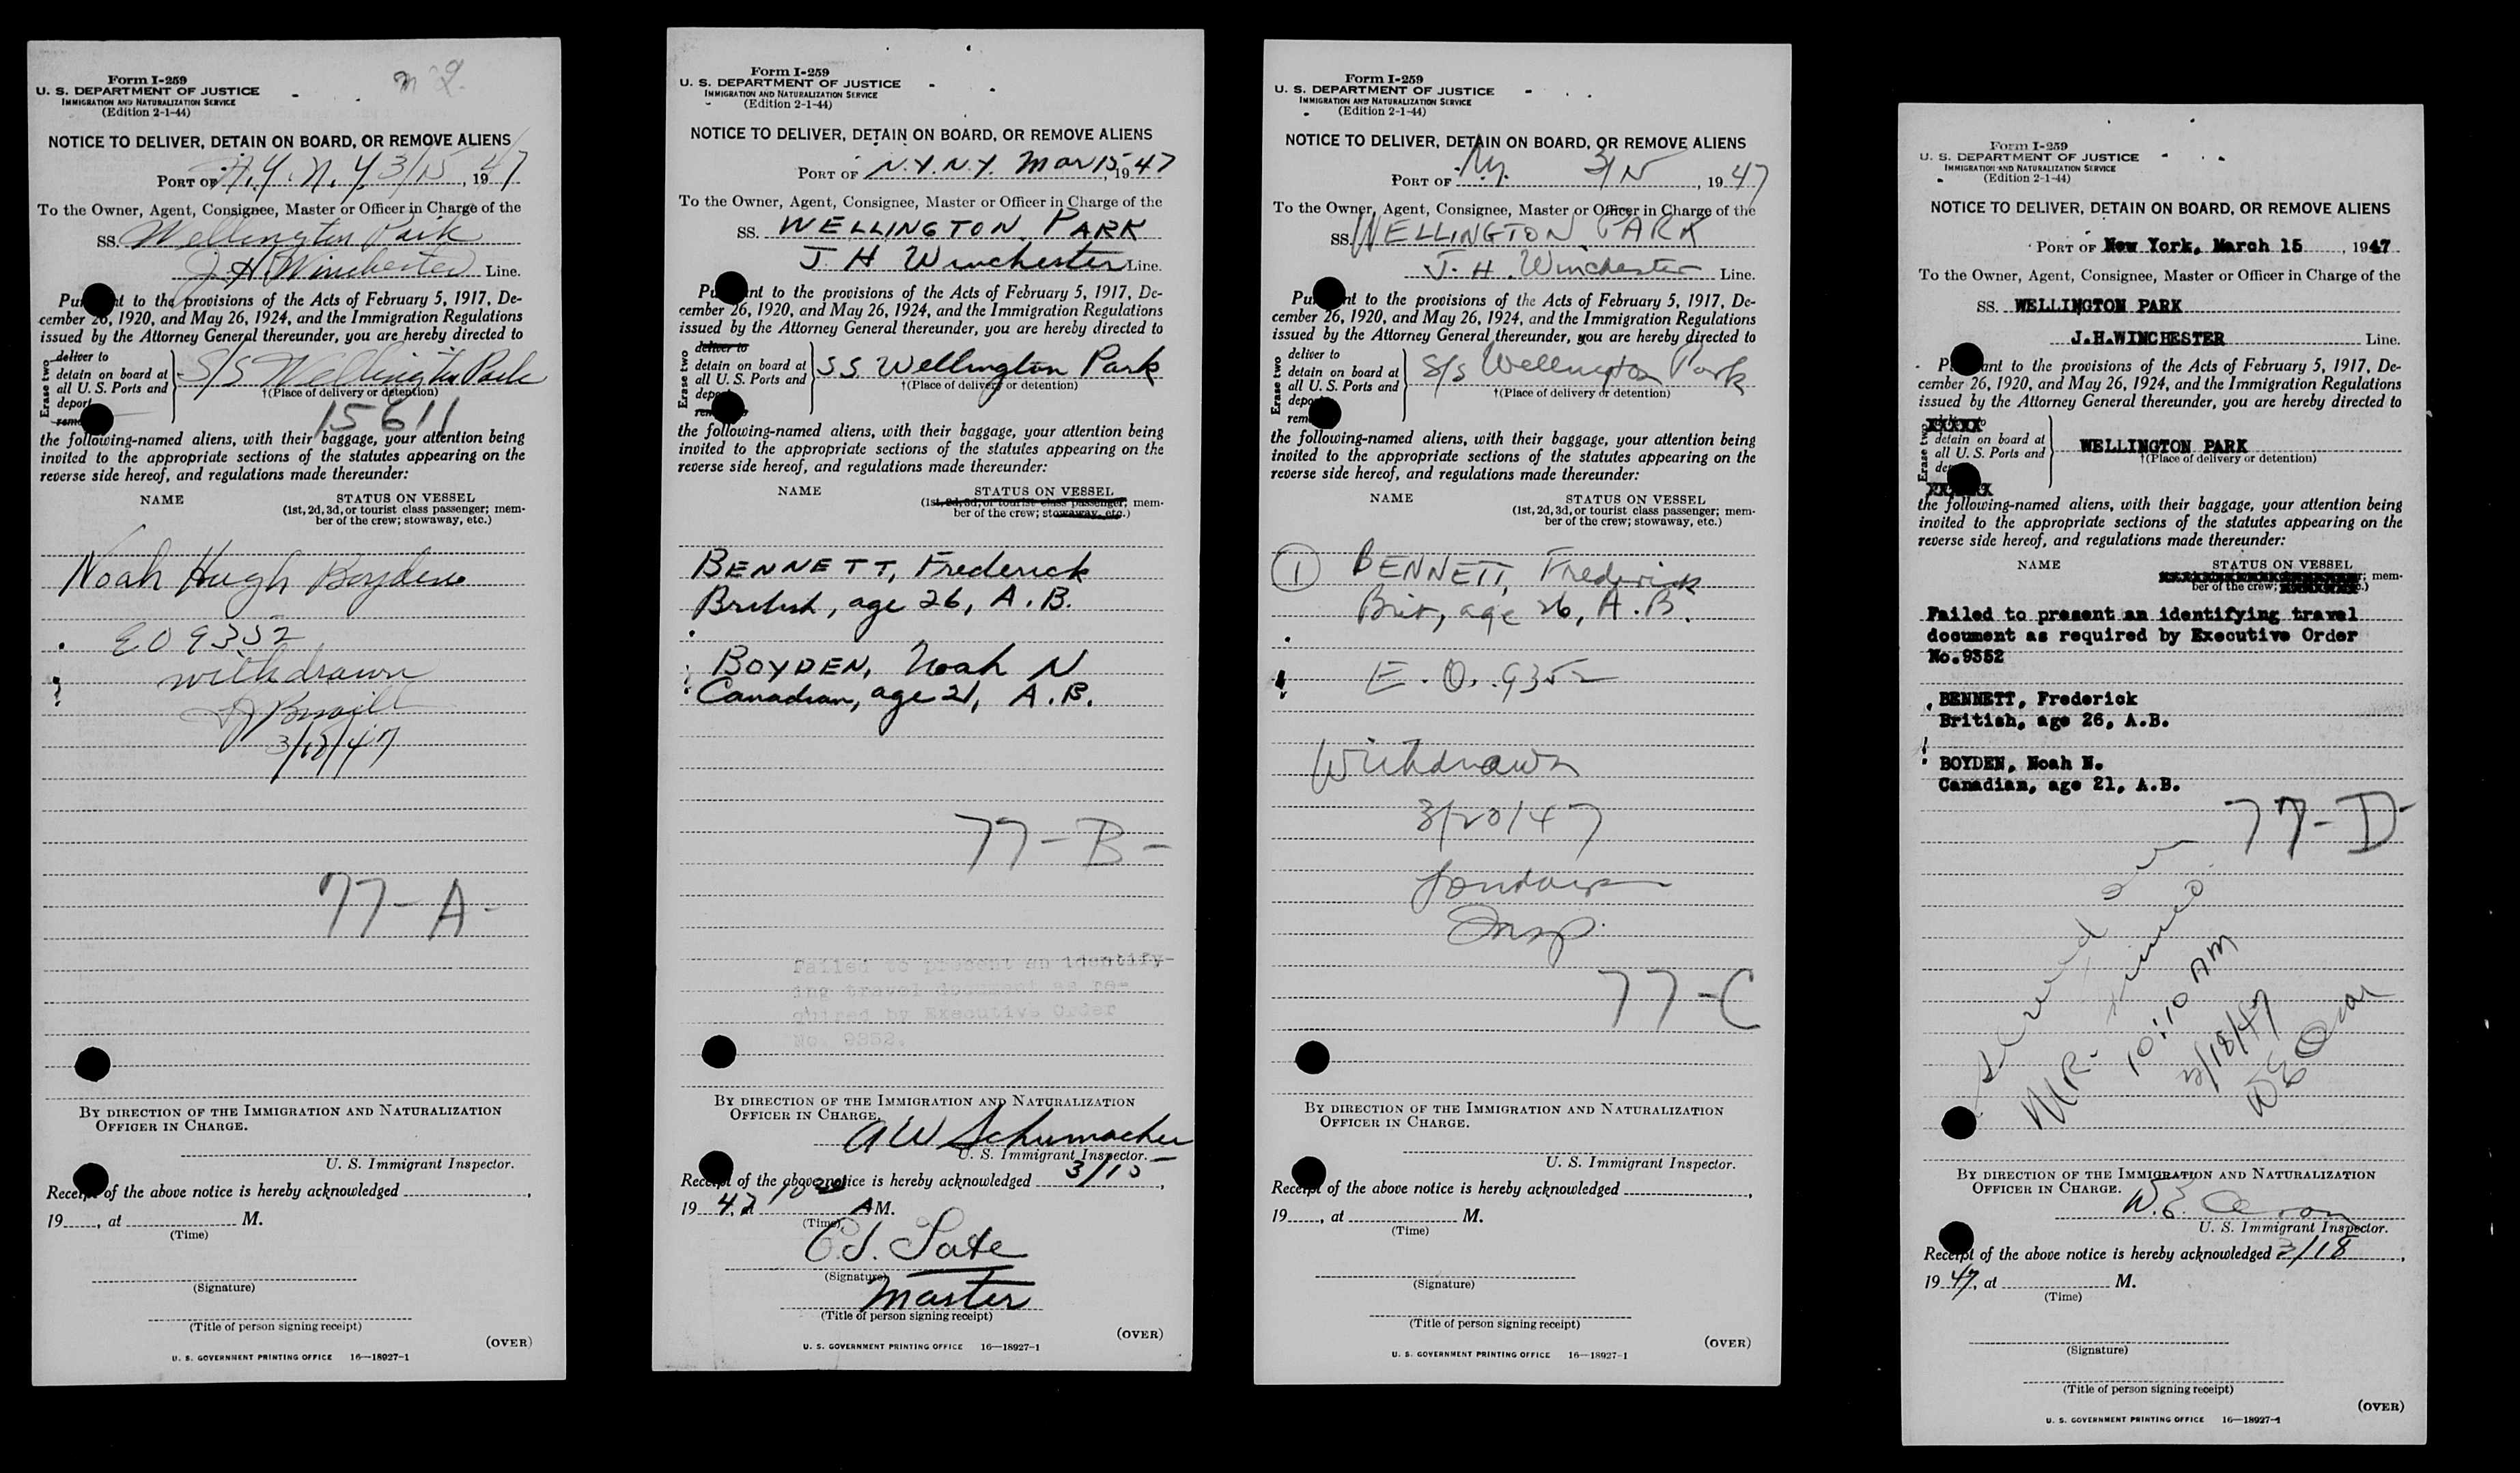 Form I-259
U. S. DEPARTMENT OF JUSTICE
IMMIGRATION AND NATURALIZATION SERVICE
(Edition 2-1-44)
NOTICE TO DELIVER, DETAIN ON BOARD, OR REMOVE ALIENS
PORT OF N.Y. N.Y. 3/15, 1947
To the Owner, Agent, Consignee, Master or Officer in Charge of the
SS. Wellington Park
J H Winchester Line.
Pu nt to the provisions of the Acts of February 5, 1917, De-
cember 26, 1920, and May 26, 1924, and the Immigration Regulations
issued by the Attorney General thereunder, you are hereby directed to
Erase two
deliver to
detain on board at
all U. S. Ports and
deport
remo
S/S Wellington Park
†(Place of delivery or detention)
15611
the following-named aliens, with their baggage, your attention being
invited to the appropriate sections of the statutes appearing on the
reverse side hereof, and regulations made thereunder:
NAME STATUS ON VESSEL
(1st, 2d, 3d, or tourist class passenger; mem-
ber of the crew; stowaway, etc.)
Noah Hugh Boyden
EO 9352
withdrawn
3/18/47
77-A-
BY DIRECTION OF THE IMMIGRATION AND NATURALIZATION
OFFICER IN CHARGE.
U. S. Immigrant Inspector.
Receipt of the above notice is hereby acknowledged ,
19 , at M.
(Time)
(Signature)
(Title of person signing receipt)
(OVER)
U. S. GOVERNMENT PRINTING OFFICE 16—18927-1
Form I-259
U. S. DEPARTMENT OF JUSTICE
IMMIGRATION AND NATURALIZATION SERVICE
(Edition 2-1-44)
NOTICE TO DELIVER, DETAIN ON BOARD, OR REMOVE ALIENS
PORT OF N.Y. N.Y. Mar 15, 1947
To the Owner, Agent, Consignee, Master or Officer in Charge of the
SS. WELLINGTON PARK
J H Winchester Line.
Pu nt to the provisions of the Acts of February 5, 1917, De-
cember 26, 1920, and May 26, 1924, and the Immigration Regulations
issued by the Attorney General thereunder, you are hereby directed to
Erase two
deliver to
detain on board at
all U. S. Ports and
depo
rem
SS Wellington Park
†(Place of delivery or detention)
the following-named aliens, with their baggage, your attention being
invited to the appropriate sections of the statutes appearing on the
reverse side hereof, and regulations made thereunder:
NAME STATUS ON VESSEL
(1st, 2d, 3d, or tourist class passenger; mem-
ber of the crew; stowaway, etc.)
BENNETT, Frederick
British, age 26, A.B.
BOYDEN, Noah N
Canadian, age 21, A.B.
77-B-
Failed to present an identify-
ing travel document as re-
quired by Executive Order
No. 9352.
BY DIRECTION OF THE IMMIGRATION AND NATURALIZATION
OFFICER IN CHARGE.
A W Schumacher
U. S. Immigrant Inspector.
Receipt of the above notice is hereby acknowledged 3/15,
1947 10 00 A M.
(Time)
(Signature)
Master
(Title of person signing receipt)
(OVER)
U. S. GOVERNMENT PRINTING OFFICE 16—18927-1
Form I-259
U. S. DEPARTMENT OF JUSTICE
IMMIGRATION AND NATURALIZATION SERVICE
(Edition 2-1-44)
NOTICE TO DELIVER, DETAIN ON BOARD, OR REMOVE ALIENS
PORT OF Ny. 3/15, 1947
To the Owner, Agent, Consignee, Master or Officer in Charge of the
SS. WELLINGTON PARK
J. H. Winchester Line.
Pu nt to the provisions of the Acts of February 5, 1917, De-
cember 26, 1920, and May 26, 1924, and the Immigration Regulations
issued by the Attorney General thereunder, you are hereby directed to
Erase two
deliver to
detain on board at
all U. S. Ports and
depo
rem
S/s Wellington Park
†(Place of delivery or detention)
the following-named aliens, with their baggage, your attention being
invited to the appropriate sections of the statutes appearing on the
reverse side hereof, and regulations made thereunder:
NAME STATUS ON VESSEL
(1st, 2d, 3d, or tourist class passenger; mem-
ber of the crew; stowaway, etc.)
1 BENNETT, Frederick
Brit, age 26, A.B.
E. O. 9352
Withdrawn
3/20/47
Insp.
77-C
BY DIRECTION OF THE IMMIGRATION AND NATURALIZATION
OFFICER IN CHARGE.
U. S. Immigrant Inspector.
Receipt of the above notice is hereby acknowledged ,
19 , at M.
(Time)
(Signature)
(Title of person signing receipt)
(OVER)
U. S. GOVERNMENT PRINTING OFFICE 16—18927-1
Form I-259
U. S. DEPARTMENT OF JUSTICE
IMMIGRATION AND NATURALIZATION SERVICE
(Edition 2-1-44)
NOTICE TO DELIVER, DETAIN ON BOARD, OR REMOVE ALIENS
PORT OF New York, March 15, 1947
To the Owner, Agent, Consignee, Master or Officer in Charge of the
SS. WELLINGTON PARK
J.H.WINCHESTER Line.
P ant to the provisions of the Acts of February 5, 1917, De-
cember 26, 1920, and May 26, 1924, and the Immigration Regulations
issued by the Attorney General thereunder, you are hereby directed to
Erase two
detain on board at
all U. S. Ports and
de
WELLINGTON PARK
†(Place of delivery or detention)
the following-named aliens, with their baggage, your attention being
invited to the appropriate sections of the statutes appearing on the
reverse side hereof, and regulations made thereunder:
NAME STATUS ON VESSEL
mem-
ber of the crew;
Failed to present an identifying travel
document as required by Executive Order
No.9352
BENNETT, Frederick
British, age 26, A.B.
BOYDEN, Noah N.
Canadian, age 21, A.B.
77-D-
served on
MR.
10:10 AM
3/18/47
BY DIRECTION OF THE IMMIGRATION AND NATURALIZATION
OFFICER IN CHARGE.
W.E.
U. S. Immigrant Inspector.
Receipt of the above notice is hereby acknowledged 3/18,
1947, at M.
(Time)
(Signature)
(Title of person signing receipt)
(OVER)
U. S. GOVERNMENT PRINTING OFFICE 16—18927-1